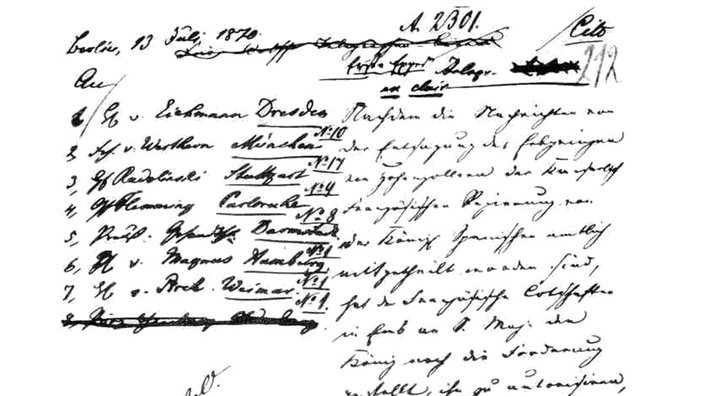 Berlin, 13 Juli, 1870.
A. 2301.
Cito
212
An
Erste Exped
Telegr.
en clair
1, H v. Eichmann Dresden
No 10
2, Frh. v. Werthern München
No 17
3, Gf Radolinski Stuttgart
No 4
4, Gf Flemming Carlsruhe
No 8
5, Preuß. Gesandtsch. Darmstadt
No 1
6, H v. Magnus Hamburg
No 1
7, H v. Weimar
No 1.
Nachdem die Nachrichten von
der Entsagung des Erbprinzen
von Hohenzollern der Kaiserlich
Französischen Regierung von
der Königl Spanischen amtlich
mitgetheilt worden sind,
hat der Französische Botschafter
in Ems an S. Maj. den
König noch die Forderung
gestellt, ihn zu autorisiren,